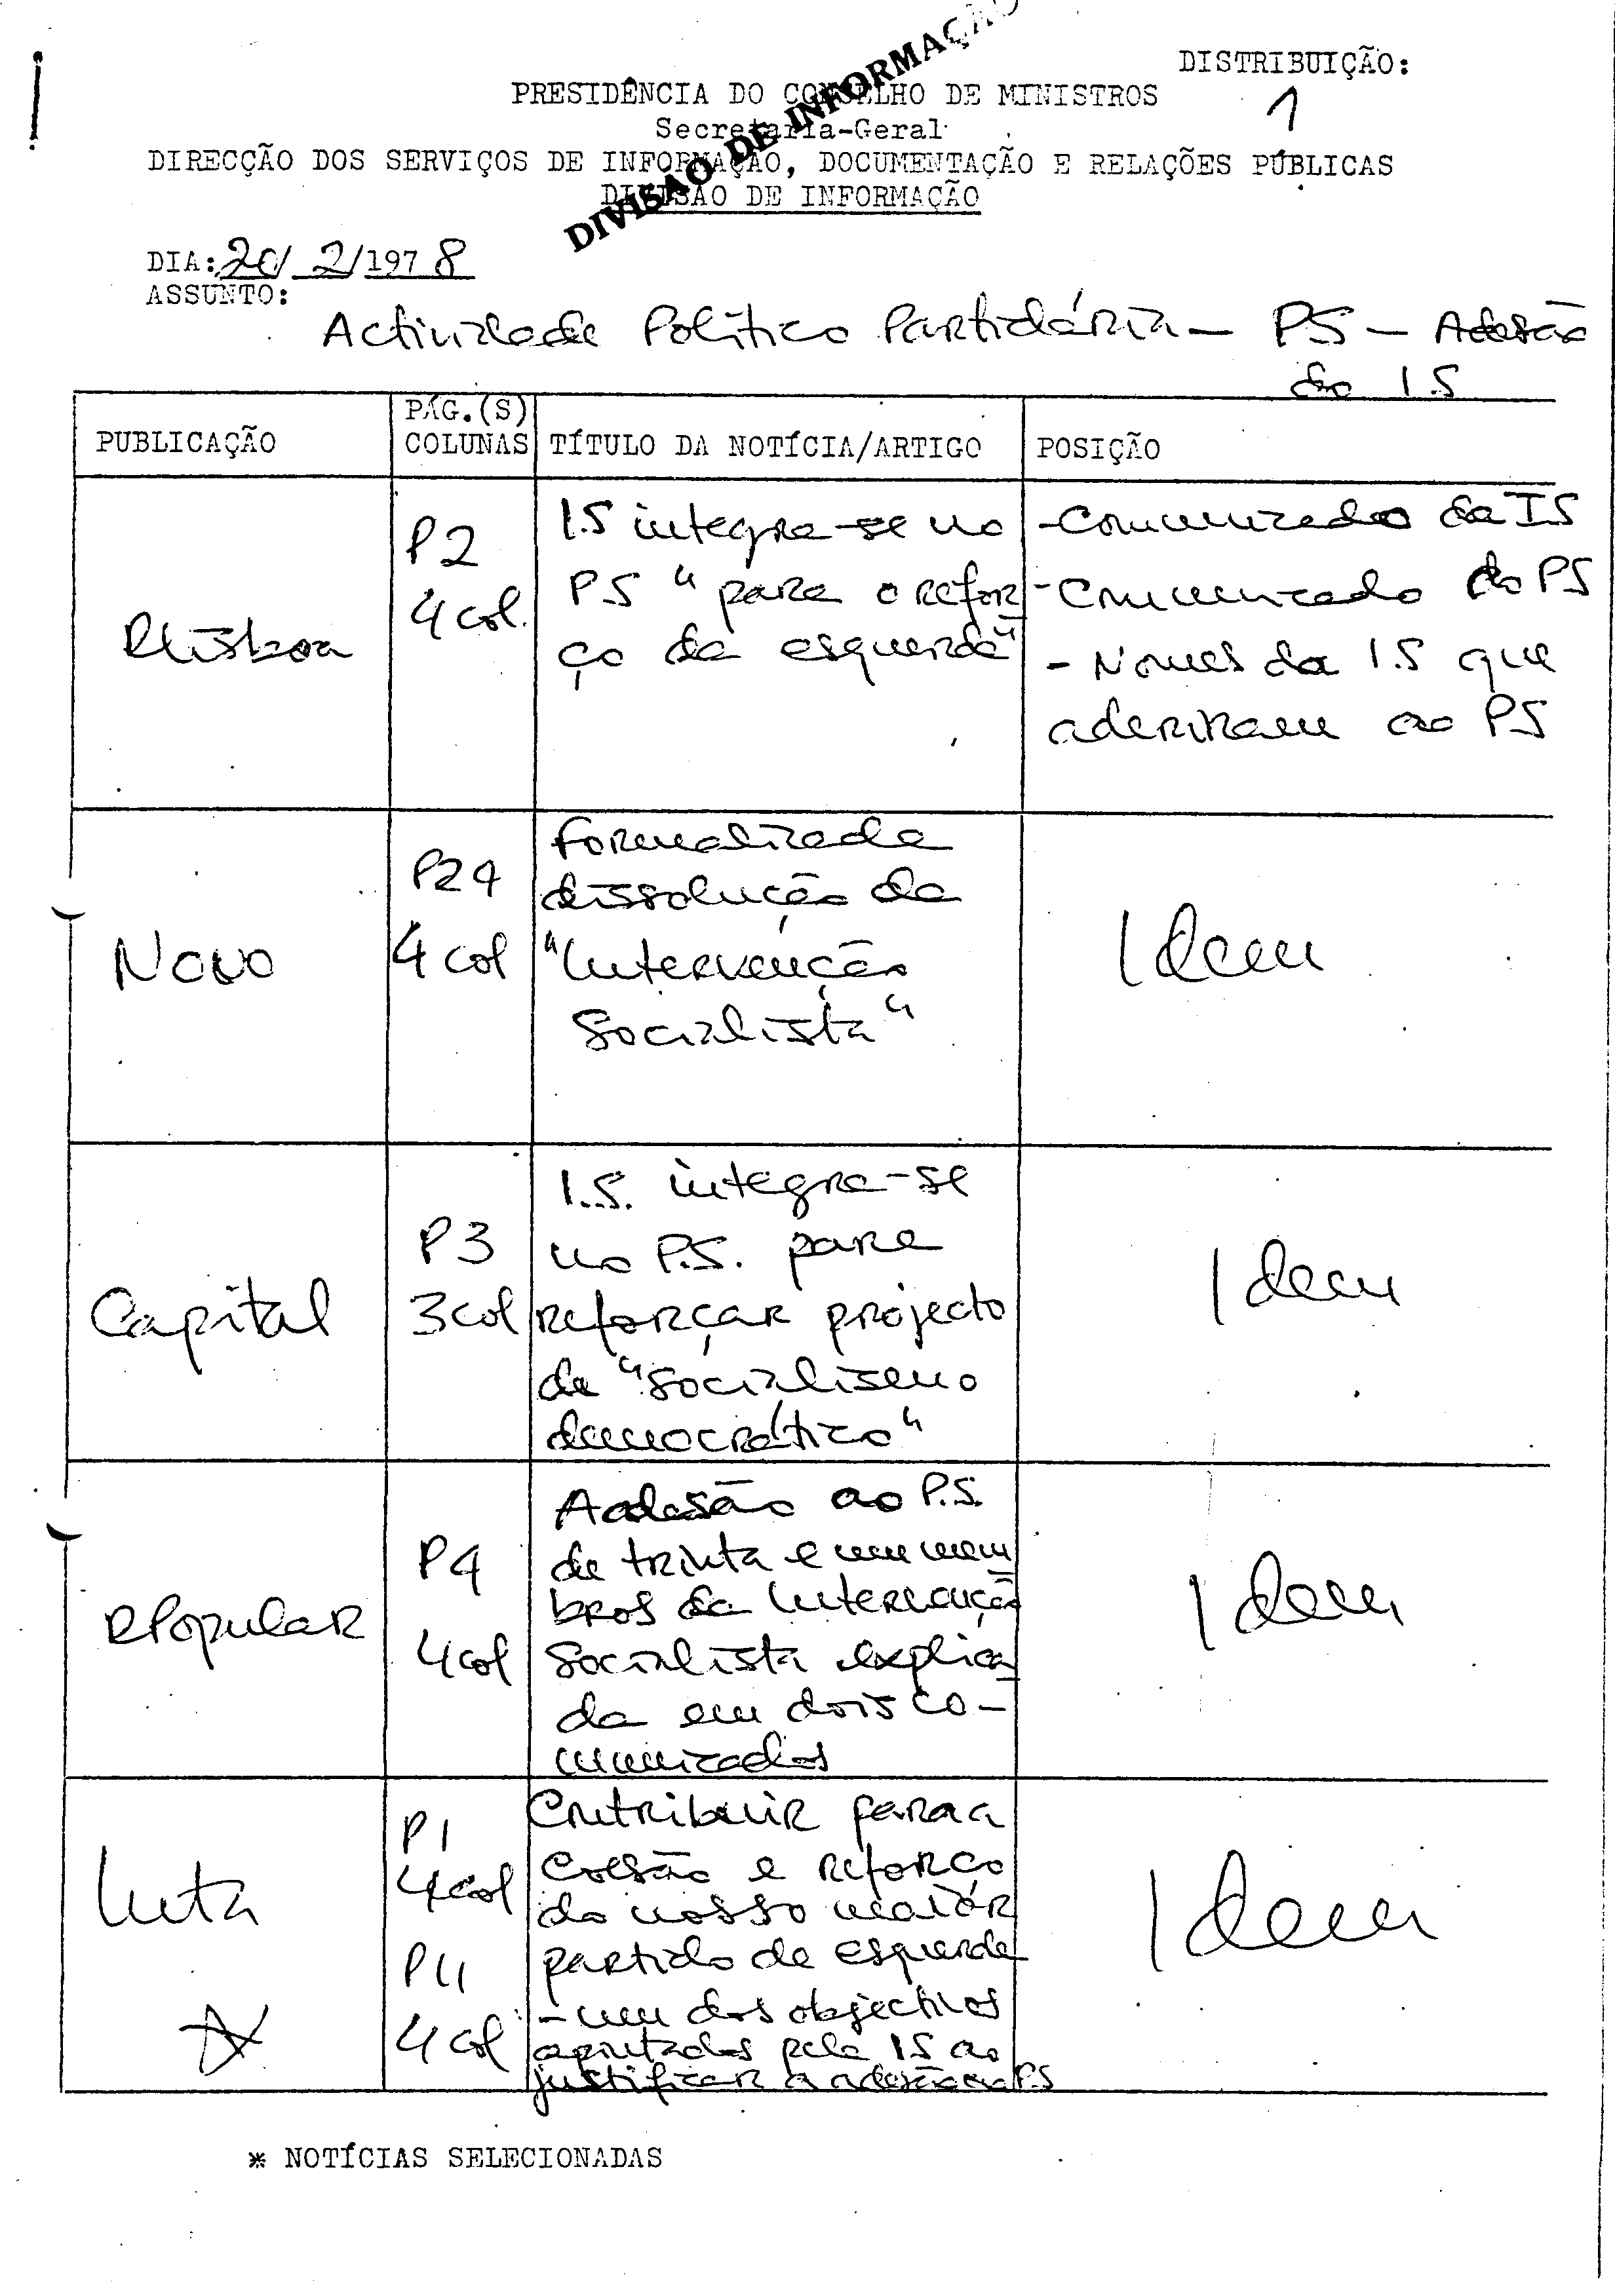 DISTRIBUIÇÃO:
1
DIVISAO DE INFORMAÇÃO
PRESIDÊNCIA DO CONSELHO DE MINISTROS
Secretaria-Geral
DIRECÇÃO DOS SERVIÇOS DE INFORMAÇÃO, DOCUMENTAÇÃO E RELAÇÕES PÚBLICAS
DIVISÃO DE INFORMAÇÃO
DIA: 20/ 2/1978
ASSUNTO:
Actividade Político Partidária - PS - Adesão
da I.S
PUBLICAÇÃO
PÁG.(S)
COLUNAS
TÍTULO DA NOTÍCIA/ARTIGO
POSIÇÃO
RLisboa
P2
4 col.
I.S integra-se no
PS "para o refor
ço da esquerda"
-Comunicado da IS
-Comunicado do PS
- Nomes da I.S que
aderiram ao PS
Novo
P24
4 col
Formalizada
dissolução da
"Intervenção
Socialista"
Idem
Capital
P3
3 col
I.S. integra-se
no P.S. para
reforçar projecto
de "socialismo
democrático"
Idem
RPopular
P4
4 col
Adesão ao P.S.
de trinta e um mem
bros da Intervenção
Socialista explica
da em dois co-
municados
Idem
Luta
P1
4 col
P11
4 col
Contribuir para a
coesão e reforço
do nosso maior
partido de esquerda
- um dos objectivos
apontados pela IS ao
justificar a adesão ao PS
Idem
* NOTÍCIAS SELECIONADAS